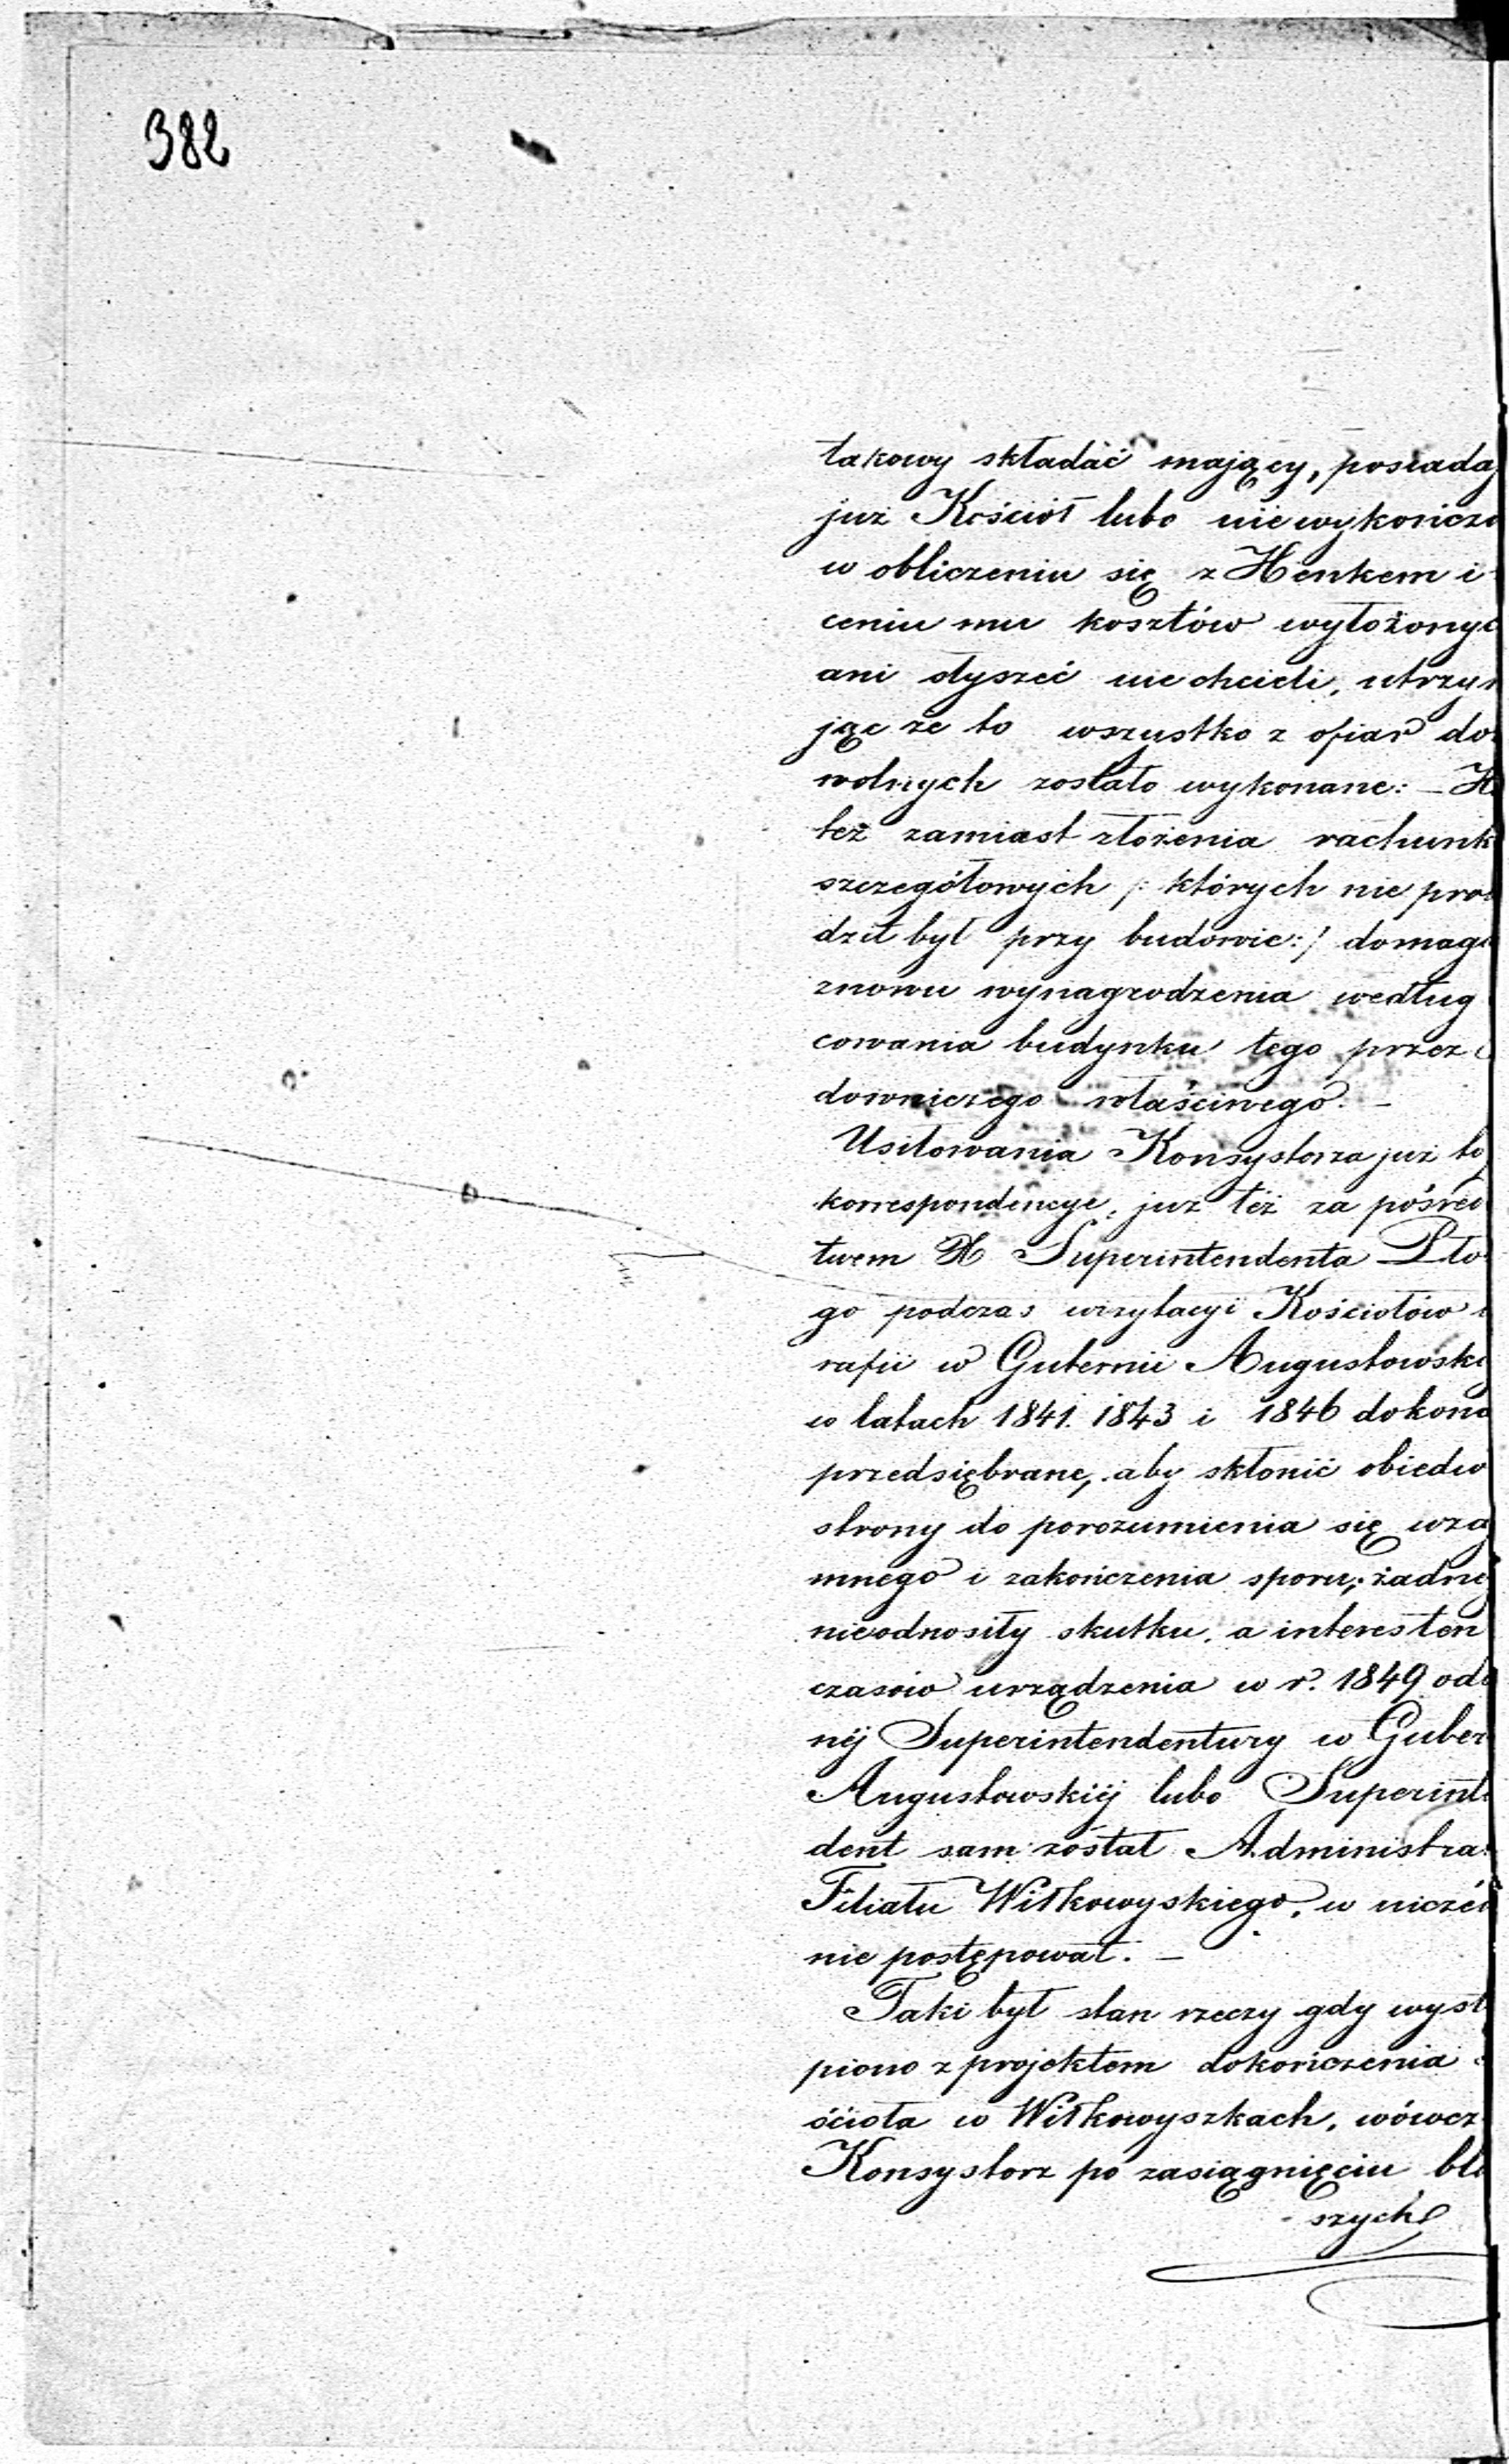 382
takowy składać mający, posiada
już Kościół lubo niewykończo
w obliczeniu się z Henkem i
ceniu mu kosztów wyłożonyc
ani słyszeć nie chcieli, utrzym
jąc że to wszystko z ofiar do
wolnych zostało wykonane: – H
też zamiast złożenia rachunk
szczegółowych /: których nie pro
dził był przy budowie:/ domaga
znowu wynagrodzenia według
cowania budynku tego przez
downiczego właściwego. –
Usiłowania Konsystorza już to
korrespondencye, już też za pośred
twem X Superintendenta Pło
go podczas wizytacyi Kościołów
rafii w Gubernii Augustowski
w latach 1841. 1843 i 1846 dokona
przedsiębrane, aby skłonić obiedw
strony do porozumienia się wza
mnego i zakończenia sporu, żadne
nieodnosiły skutku, a interes ten
czasów urządzenia w r. 1849 odd
néj Superintendentury w Guber
Augustowskiéj lubo Superint
dent sam został Administra
Filiału Wiłkowyskiego, w niczé
nie postępował. –
Taki był stan rzeczy gdy wyst
piono z projektem dokończenia
ścioła w Wiłkowyszkach, wówcz
Konsystorz po zasiągnięciu bli
szych